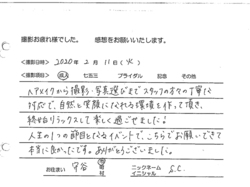 撮影お疲れ様でした。 感想をお願いいたします。
《撮影日時》 2020年 2月 11日 (火)
《撮影項目》 成人 七五三 ブライダル 記念 その他
ヘアメイクから撮影・写真選びまでスタッフの方々の丁寧な
対応で、自然と笑顔になれる環境を作って頂き、
終始リラックスして楽しく過ごせました。
人生の1つの節目となるイベントで、こちらでお願いできて
本当に良かったです。ありがとうございました。
お住まい 守谷 市 ニックネーム イニシャル S.C.